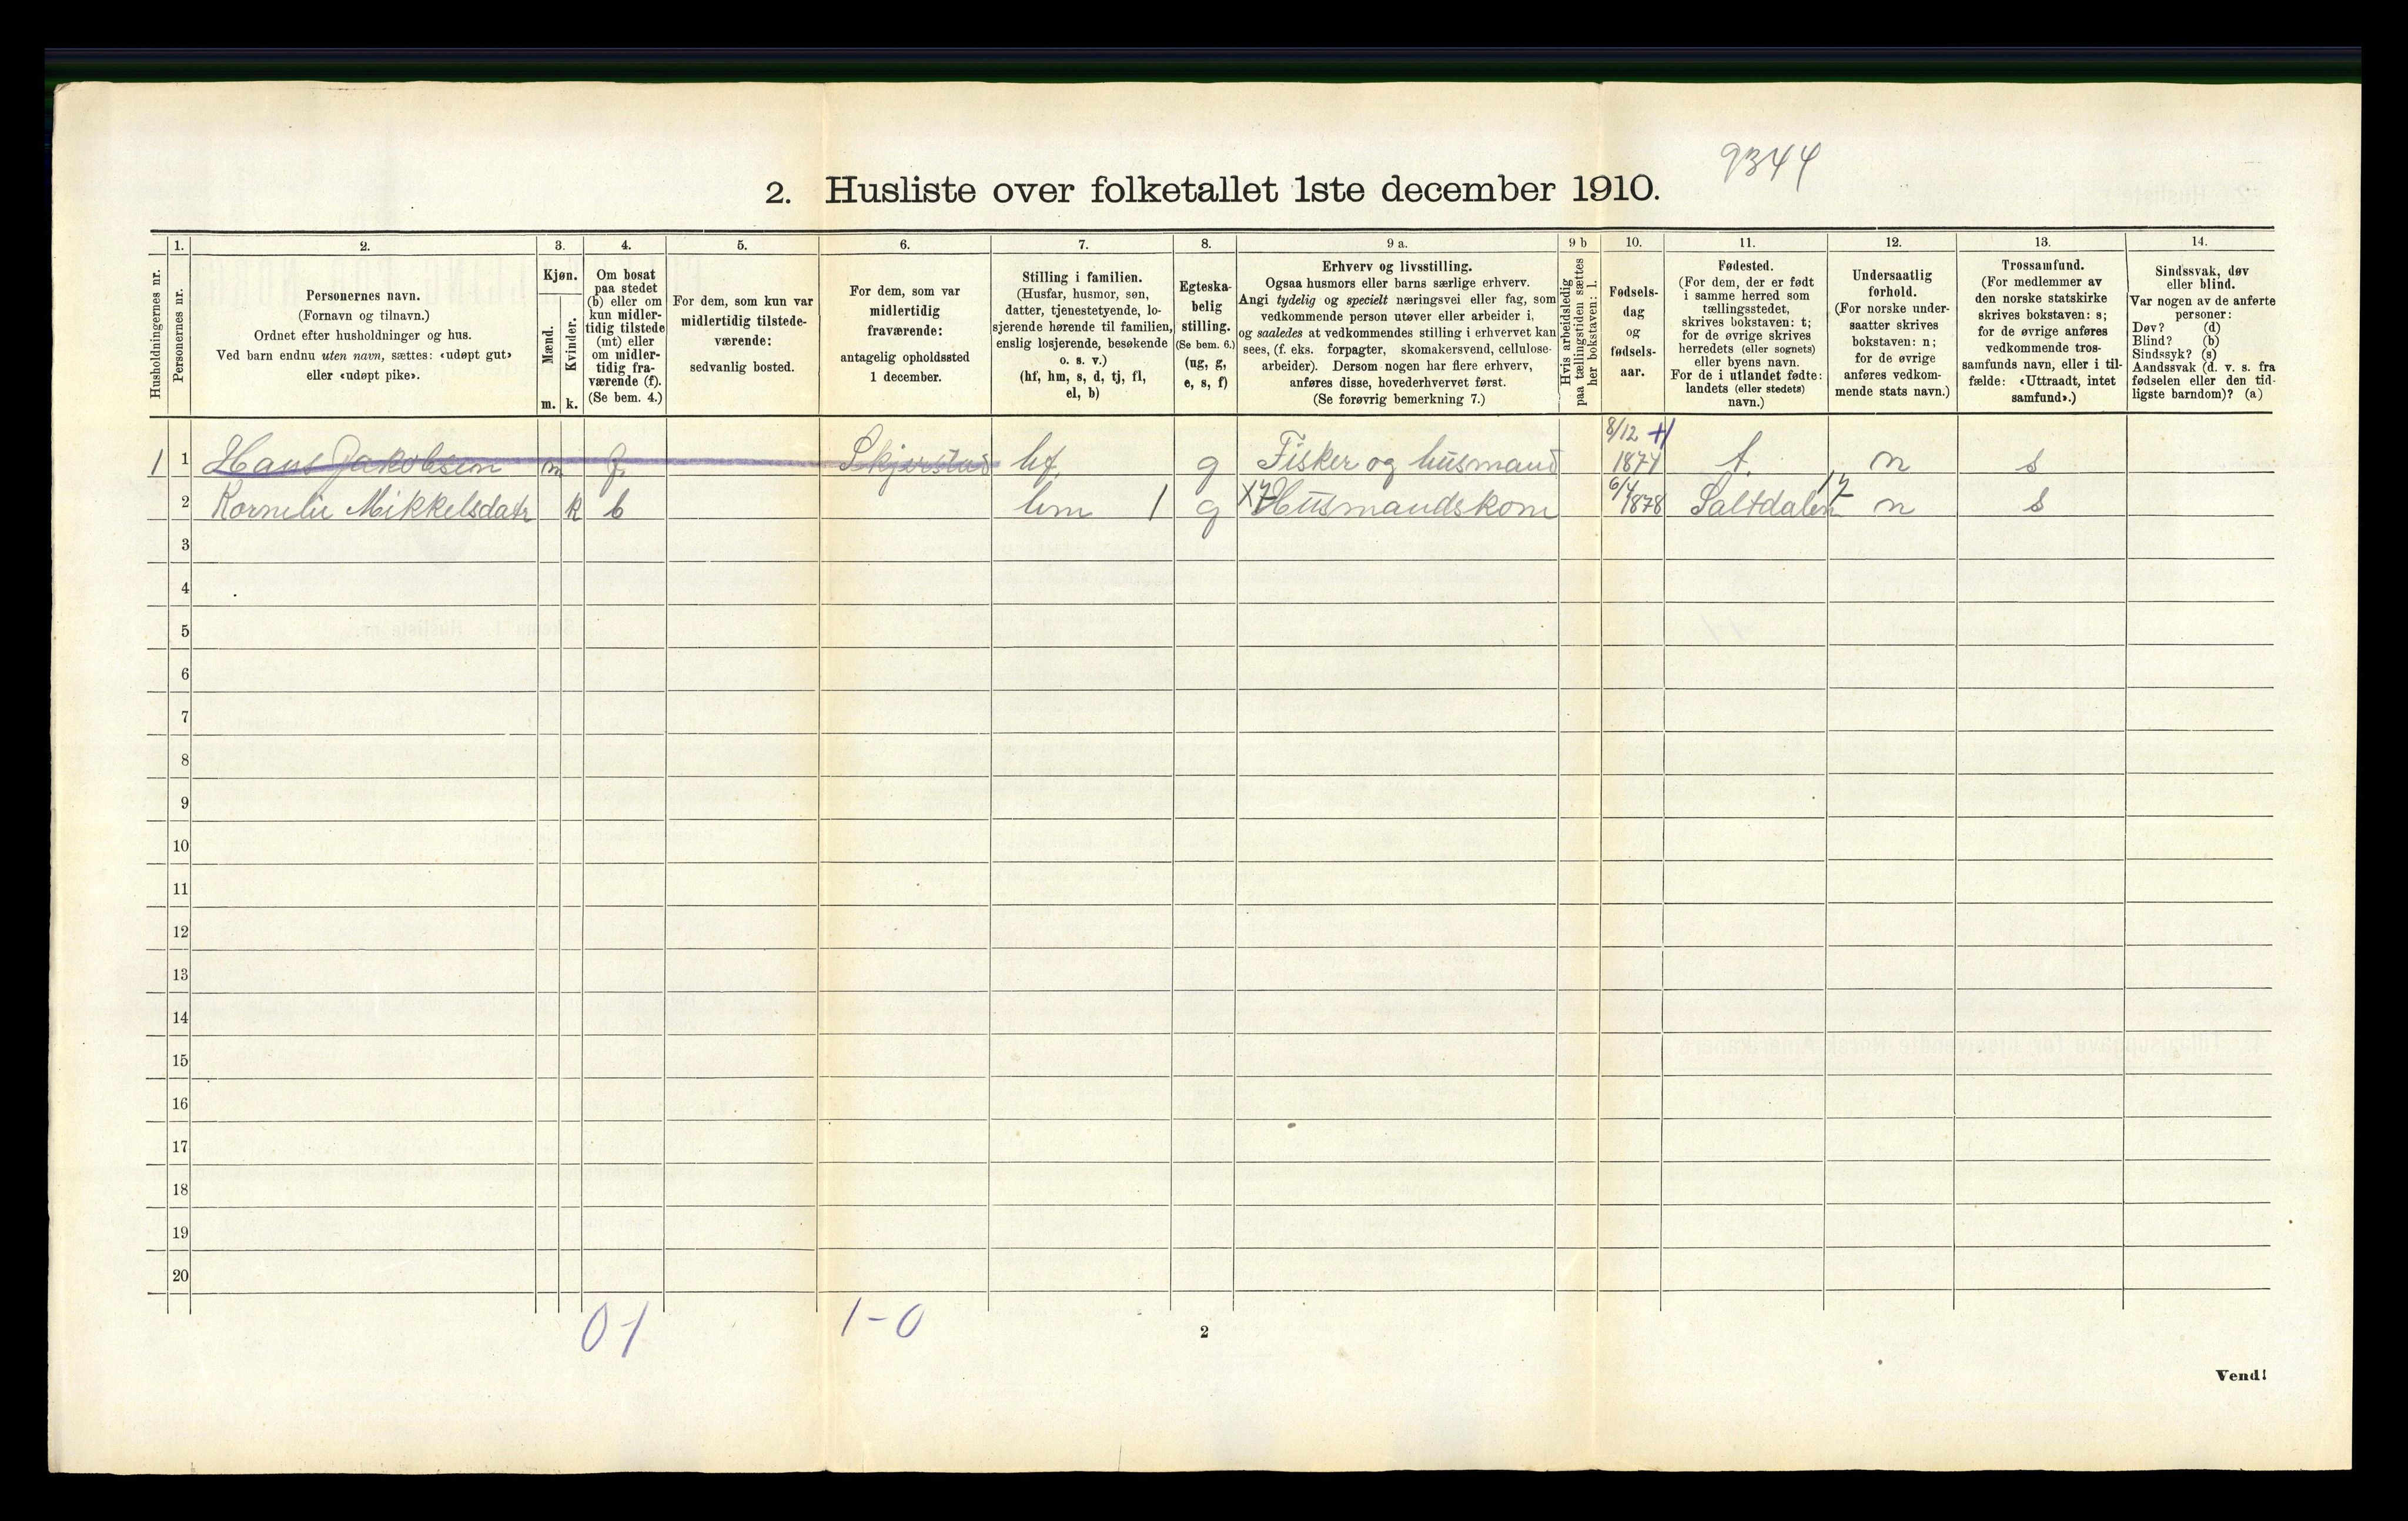 9344
2. Husliste over folketallet 1ste december 1910.
Husholdningernes nr.
1.
Personernes nr.
2.
Personernes navn.
(Fornavn og tilnavn.)
Ordnet efter husholdninger og hus.
Ved barn endnu uten navn, sættes: «udøpt gut»
eller «udøpt pike».
3.
Kjøn.
Mænd.
Kvinder.
m. k.
4.
Om bosat
paa stedet
(b) eller om
kun midler-
tidig tilstede
(mt) eller
om midler-
tidig fra-
værende (f).
(Se bem. 4.)
5.
For dem, som kun var
midlertidig tilstede-
værende:
sedvanlig bosted.
6.
For dem, som var
midlertidig
fraværende:
antagelig opholdssted
1 december.
7.
Stilling i familien.
(Husfar, husmor, søn,
datter, tjenestetyende, lo-
sjerende hørende til familien,
enslig losjerende, besøkende
o. s. v.)
(hf, hm, s, d, tj, fl,
el, b)
8.
Egteska-
belig
stilling.
(Se bem. 6.)
(ug, g,
e, s, f)
9 a.
Erhverv og livsstilling.
Ogsaa husmors eller barns særlige erhverv.
Angi tydelig og specielt næringsvei eller fag, som
vedkommende person utøver eller arbeider i,
og saaledes at vedkommendes stilling i erhvervet kan
sees, (f. eks. forpagter, skomakersvend, cellulose-
arbeider). Dersom nogen har flere erhverv,
anføres disse, hovederhvervet først.
(Se forøvrig bemerkning 7.)
9 b
Hvis arbeidsledig
paa tællingstiden sættes
her bokstaven: l.
10.
Fødsels-
dag
og
fødsels-
aar.
11.
Fødested.
(For dem, der er født
i samme herred som
tællingsstedet,
skrives bokstaven: t;
for de øvrige skrives
herredets (eller sognets)
eller byens navn.
For de i utlandet fødte:
landets (eller stedets)
navn.)
12.
Undersaatlig
forhold.
(For norske under-
saatter skrives
bokstaven: n;
for de øvrige
anføres vedkom-
mende stats navn.)
13.
Trossamfund.
(For medlemmer av
den norske statskirke
skrives bokstaven: s;
for de øvrige anføres
vedkommende tros-
samfunds navn, eller i til-
fælde: «Uttraadt, intet
samfund».)
14.
Sindssvak, døv
eller blind.
Var nogen av de anførte
personer:
Døv? (d)
Blind? (b)
Sindssyk? (s)
Aandssvak (d. v. s. fra
fødselen eller den tid-
ligste barndom)? (a)
1 1 Hans Jakobsen m f. Skjerstad hf. g Fisker og husmand 8/12 1874 t. n s
2 Kornelie Mikkelsdatr k b hm 1 g Husmandskone 6/4 1878 Saltdalen n s
3
4
5
6
7
8
9
10
11
12
13
14
15
16
17
18
19
20
0-1 1-0
2
Vend!